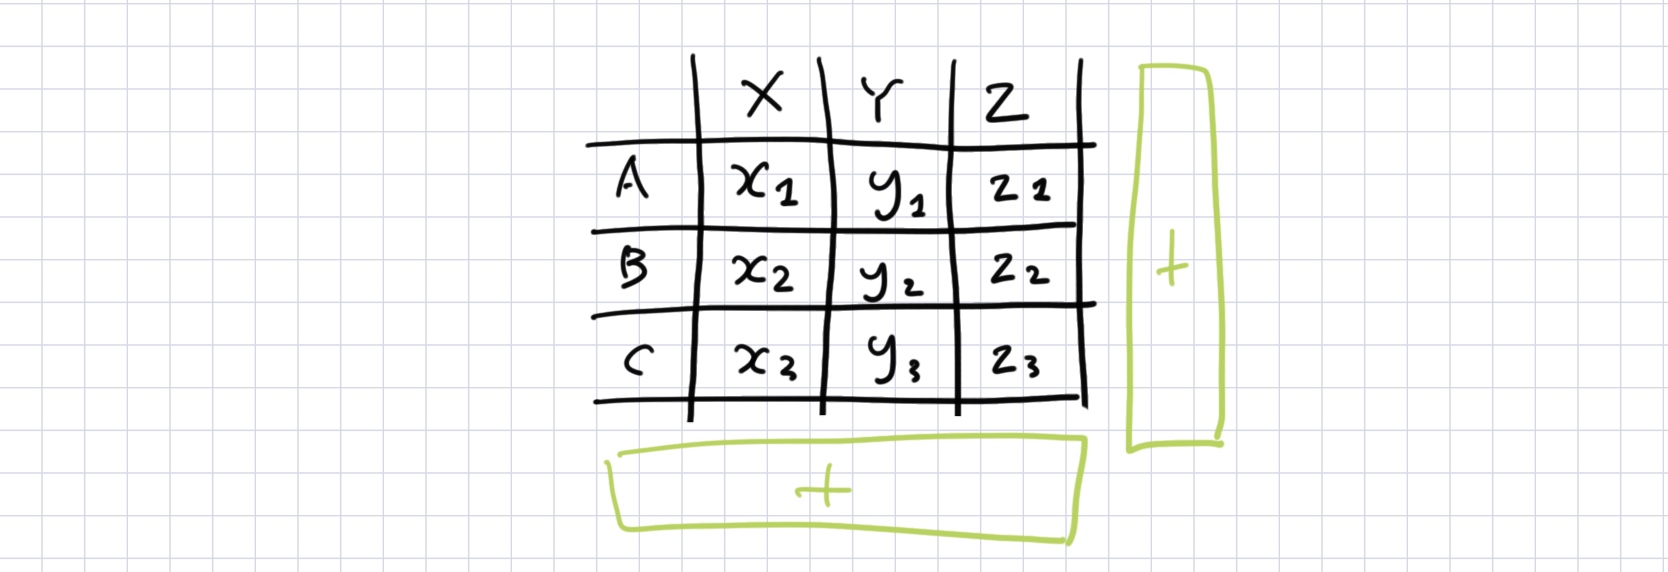 X Y Z
A x1 y1 z1
B x2 y2 z2
C x3 y3 z3
+
+